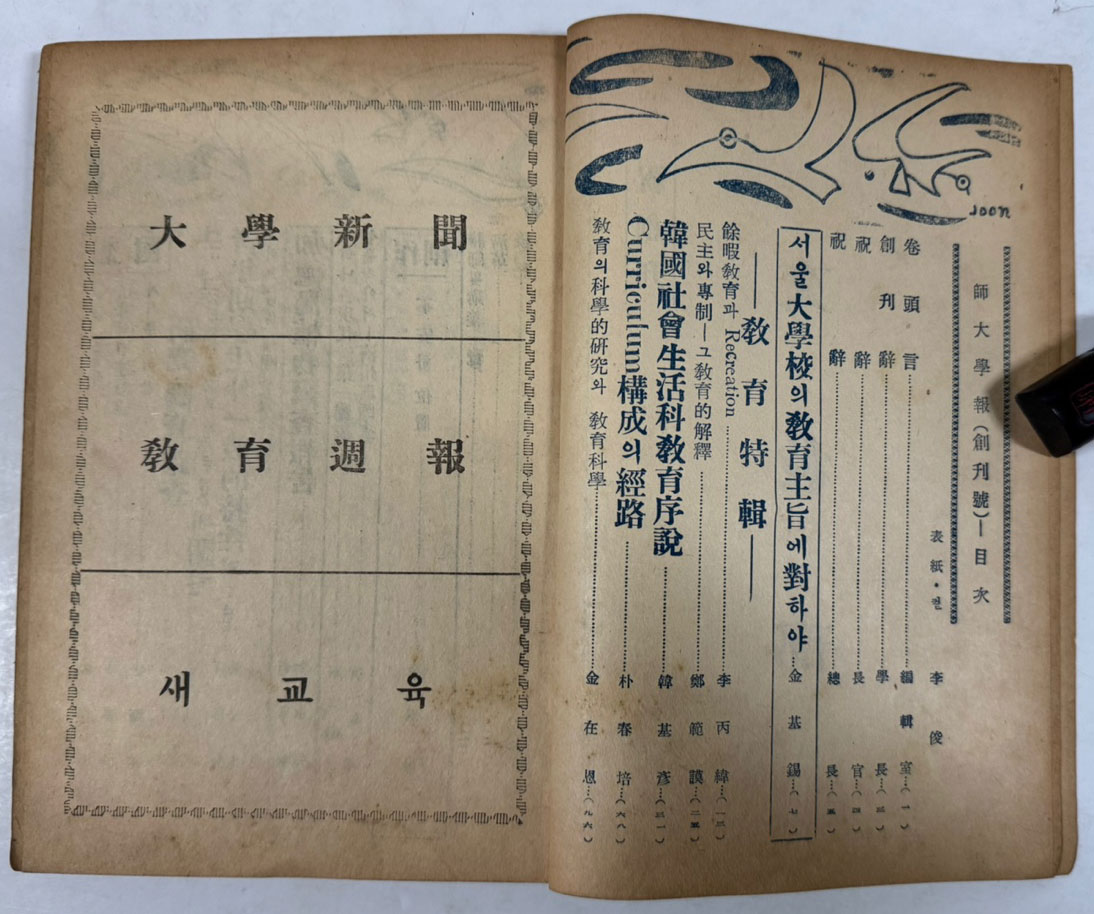 大學新聞
敎育週報
새교육
joon
師大學報(創刊號)—目次
表紙・컽 李俊
卷頭言 編輯室(一)
創刊辭 學長(三)
祝辭 長官(四)
祝辭 總長(五)
서울大學校의敎育主旨에對하야 金基錫(七)
——敎育特輯——
餘暇敎育과 Recreation 李丙緯(一二)
民主와專制—그敎育的解釋 鄭範謨(二五)
韓國社會生活科敎育序說 韓基彦(三一)
Curriculum構成의經路 朴春培(六八)
敎育의科學的硏究와 敎育科學 金在恩(九六)